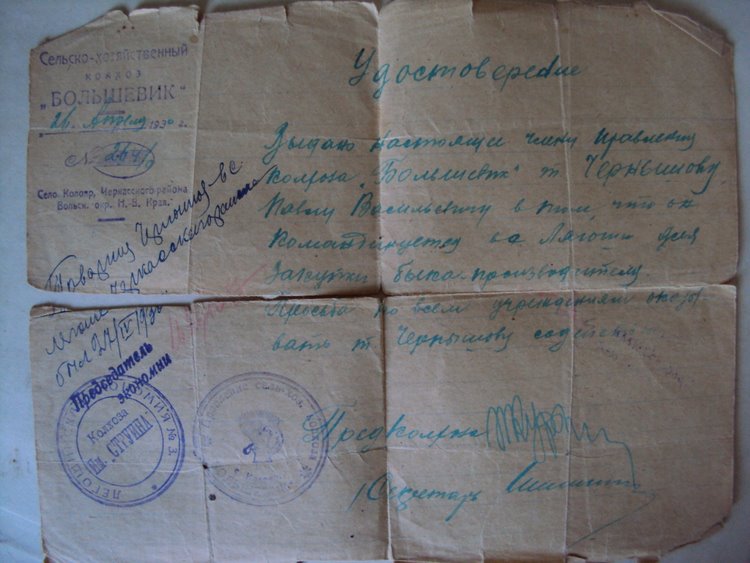 Сельско-хозяйственный
колхоз
„БОЛЬШЕВИК“
26 Апреля 1930 г.
№ 264
Село Колояр, Черкасского района
Вольск. окр. Н.-В. Края.
Удостоверение
Выдано настоящее члену правления
колхоза „Большевик“ т. Чернышову
Павлу Васильевичу в том, что он
командируется в с. Лягоши для
закупки быка-производителя.
Просьба ко всем учреждениям оказы
вать т. Чернышову
Товарищ
Черкасского района
был 27/IV 1930
Председатель
экономии
№ 3.
Колхоза
Предколхоза
Секретарь